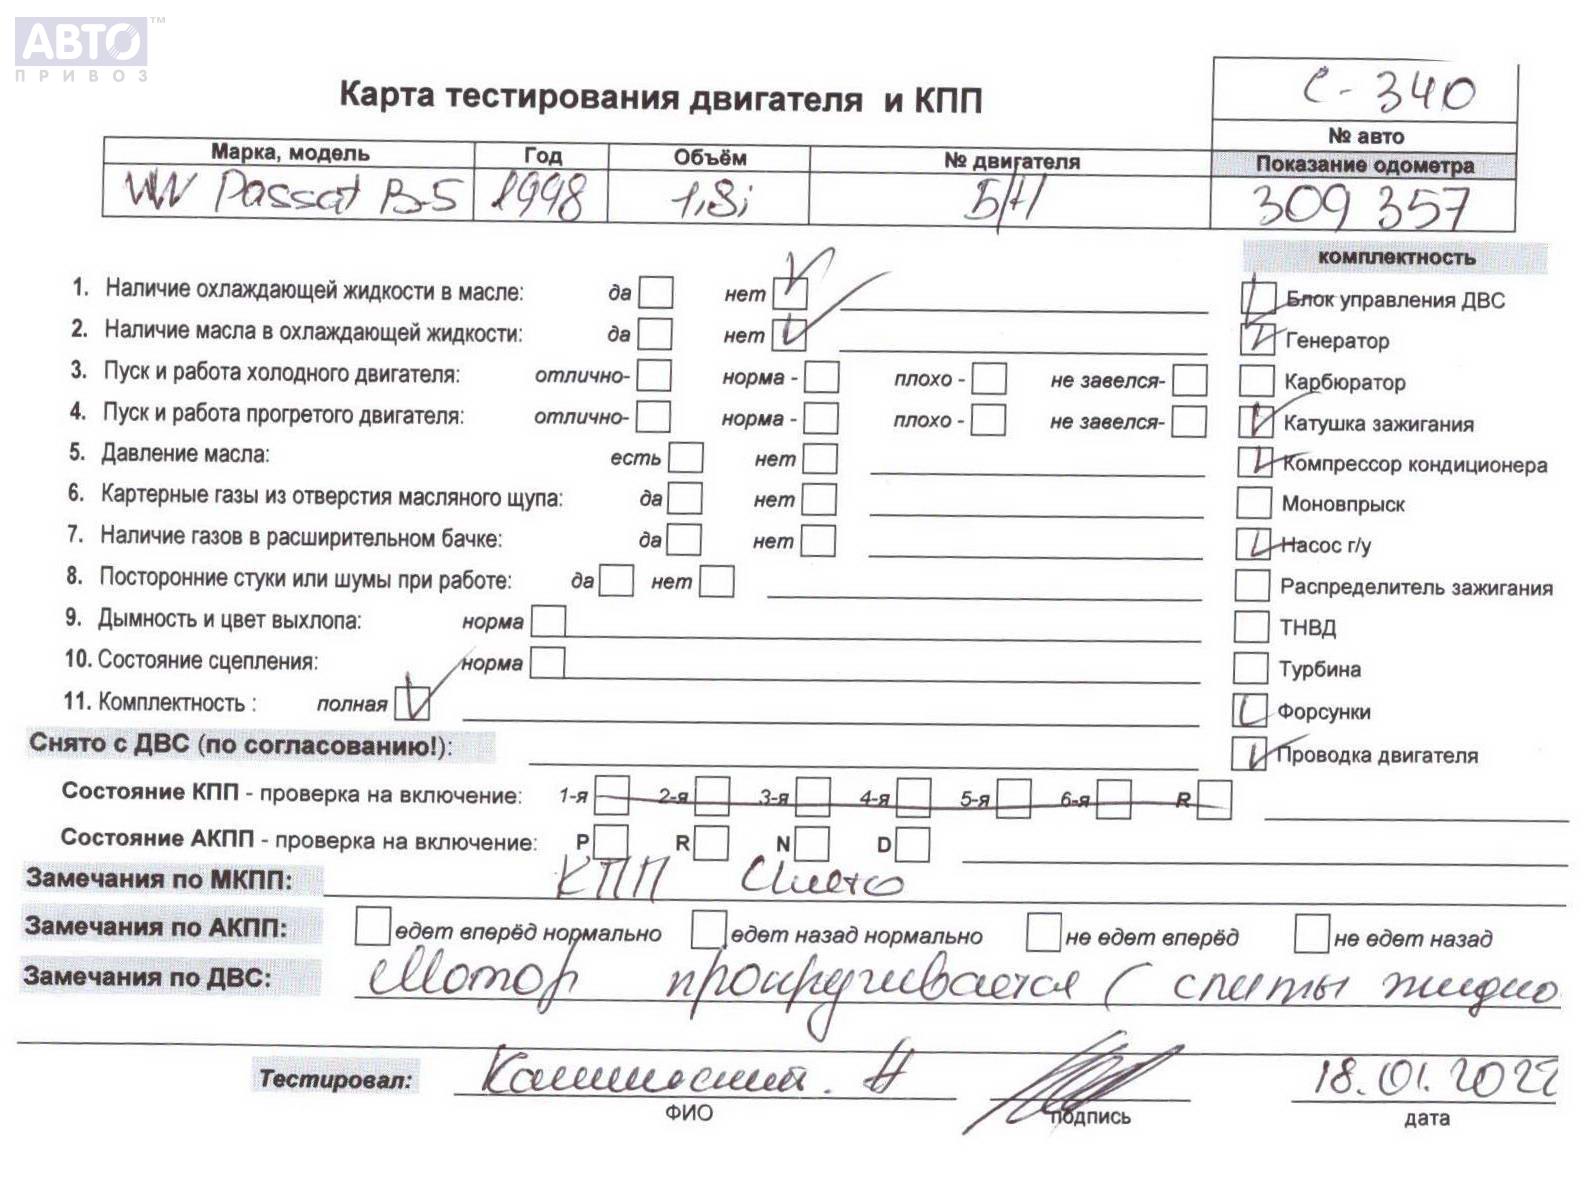 АВТО™
ПРИВОЗ
С-340
Карта тестирования двигателя и КПП
№ авто
Марка, модель Год Объём № двигателя Показание одометра
VW Passat B-5 1998 1,8i Б/Н 309 357
комплектность
1. Наличие охлаждающей жидкости в масле: да нет
Блок управления ДВС
2. Наличие масла в охлаждающей жидкости: да нет
Генератор
3. Пуск и работа холодного двигателя: отлично- норма - плохо - не завелся-
Карбюратор
4. Пуск и работа прогретого двигателя: отлично- норма - плохо - не завелся-
Катушка зажигания
5. Давление масла: есть нет
Компрессор кондиционера
6. Картерные газы из отверстия масляного щупа: да нет
Моновпрыск
7. Наличие газов в расширительном бачке: да нет
Насос г/у
8. Посторонние стуки или шумы при работе: да нет
Распределитель зажигания
9. Дымность и цвет выхлопа: норма
ТНВД
10. Состояние сцепления: норма
Турбина
11. Комплектность : полная
Форсунки
Снято с ДВС (по согласованию!):
Проводка двигателя
Состояние КПП - проверка на включение: 1-я 2-я 3-я 4-я 5-я 6-я R
Состояние АКПП - проверка на включение: P R N D
Замечания по МКПП: КПП снято
Замечания по АКПП: едет вперёд нормально едет назад нормально не едет вперёд не едет назад
Замечания по ДВС: Мотор прокручивается (слиты жидко
Тестировал: 18.01.2022
ФИО подпись дата